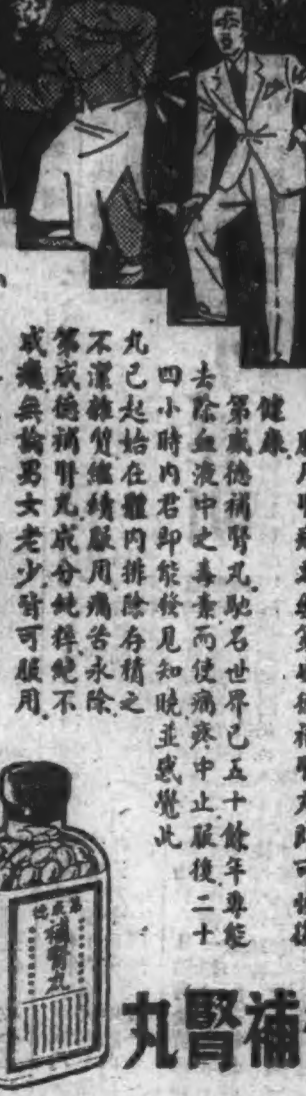 健康.
第威德補腎丸.馳名世界已五十餘年.專能
去除血液中之毒素而使痛疼中止服後二十
四小時內君即能發見知曉.並感覺此
丸已起始在體內排除存積之
不潔雜質繼續服用痛苦永除
第威德補腎丸成分純粹絕不
成癮無論男女老少.皆可服用.
第威德
補腎丸
補腎丸